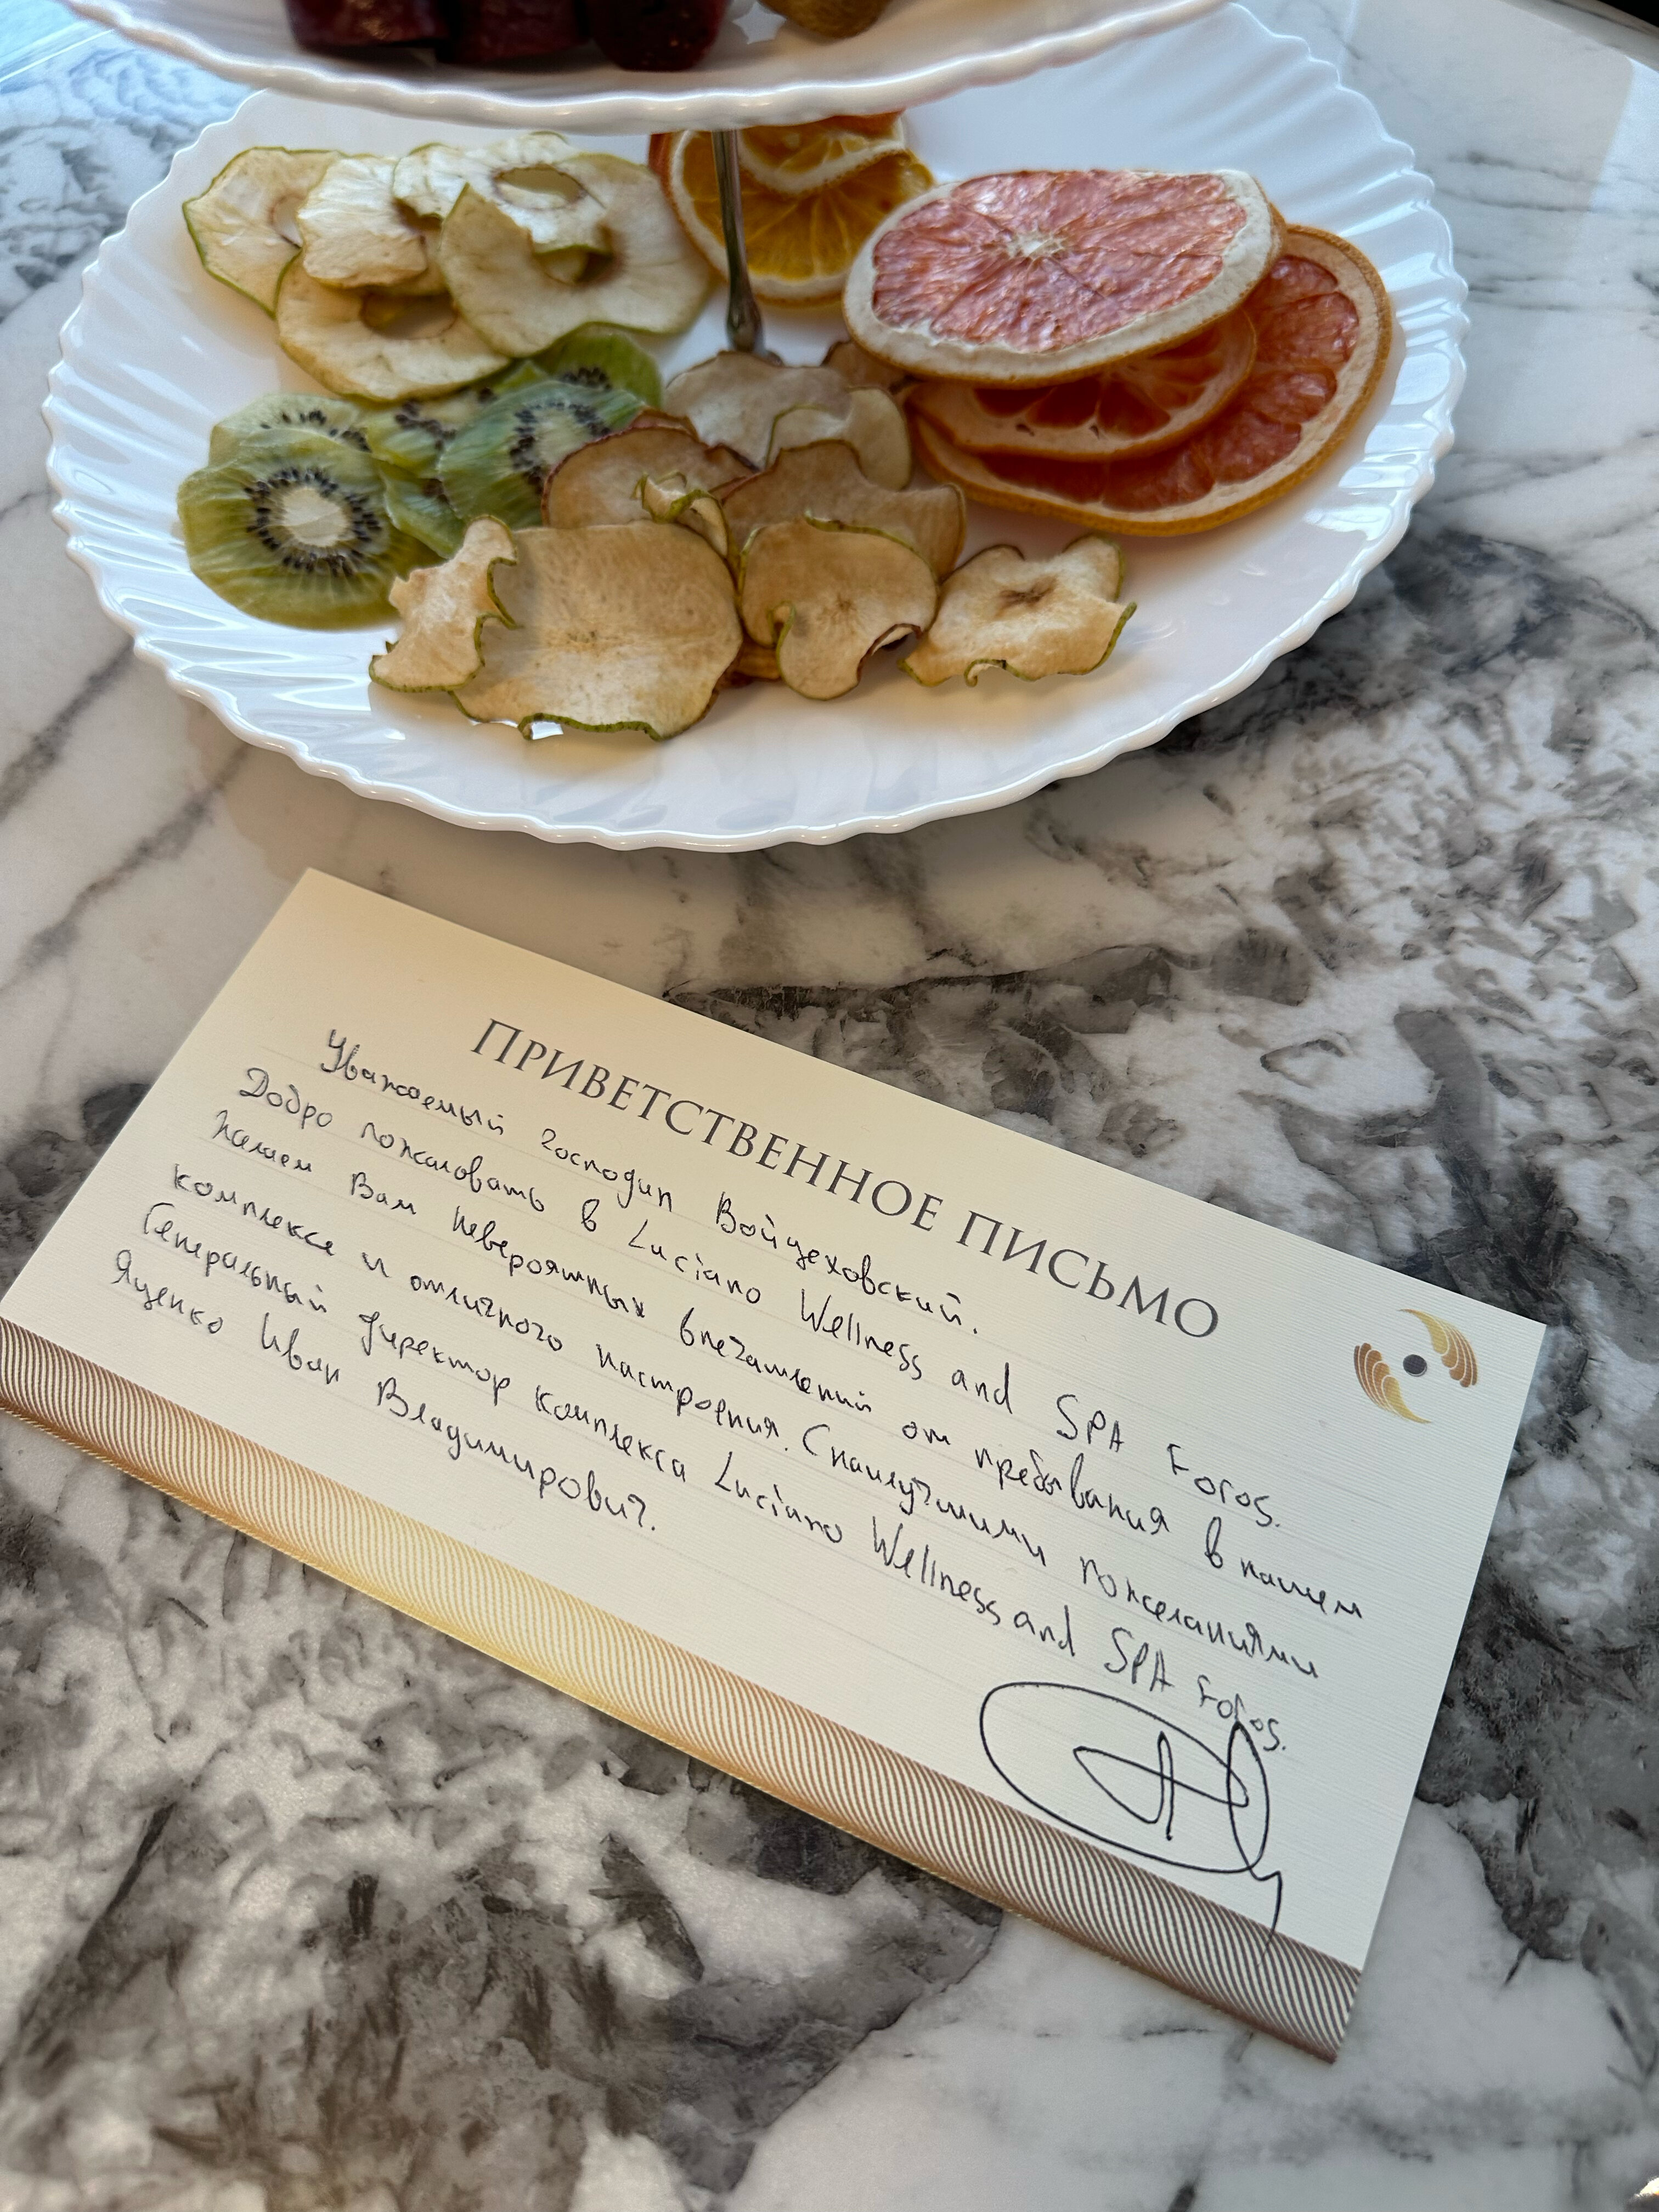 ПРИВЕТСТВЕННОЕ ПИСЬМО
Уважаемый господин Войцеховский.
Добро пожаловать в Luciano Wellness and SPA Foros.
Желаем Вам невероятных впечатлений от пребывания в нашем
комплексе и отличного настроения. С наилучшими пожеланиями
Генеральный директор комплекса Luciano Wellness and SPA Foros.
Яценко Иван Владимирович.